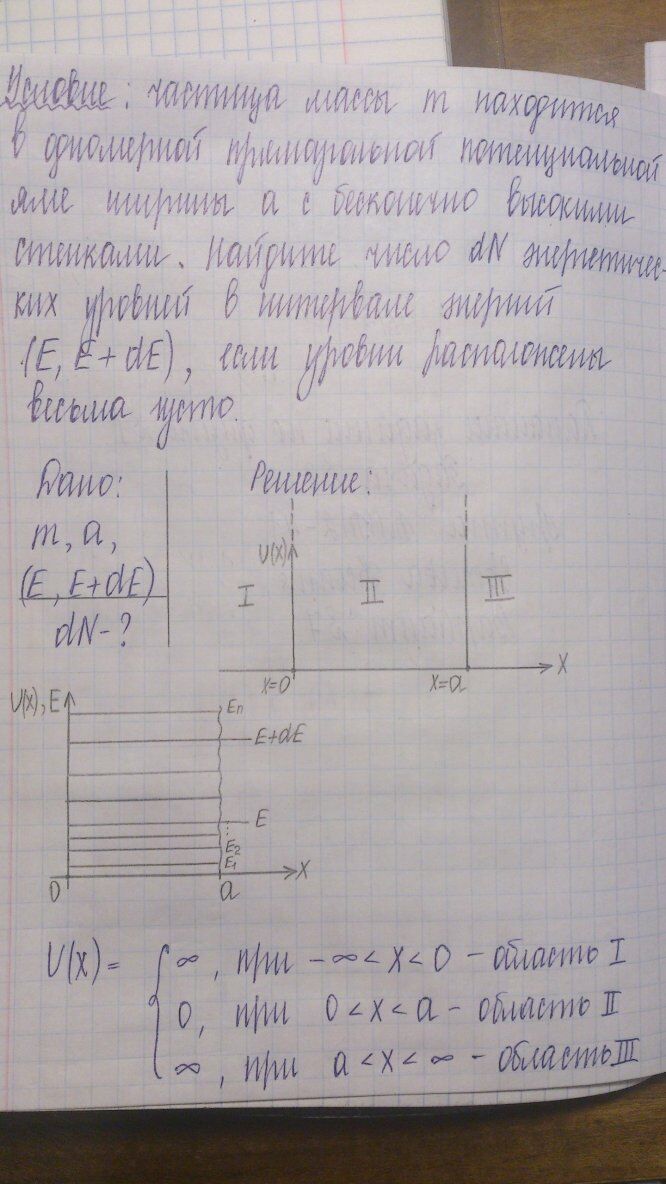 Условие: частица массы m находится
в одномерной прямоугольной потенциальной
яме ширины a с бесконечно высокими
стенками. Найдите число dN энергетичес-
ких уровней в интервале энергий
(E, E + dE), если уровни расположены
весьма густо.
Дано:
m, a,
(E, E+dE)
dN-?
Решение:
U(x)
I
II
III
x=0
x=a
X
U(x), E
En
E+dE
E
⋮
E2
E1
0
a
X
U(x) = { ∞, при -∞ < x < 0 - область I
0, при 0 < x < a - область II
∞, при a < x < ∞ - область III